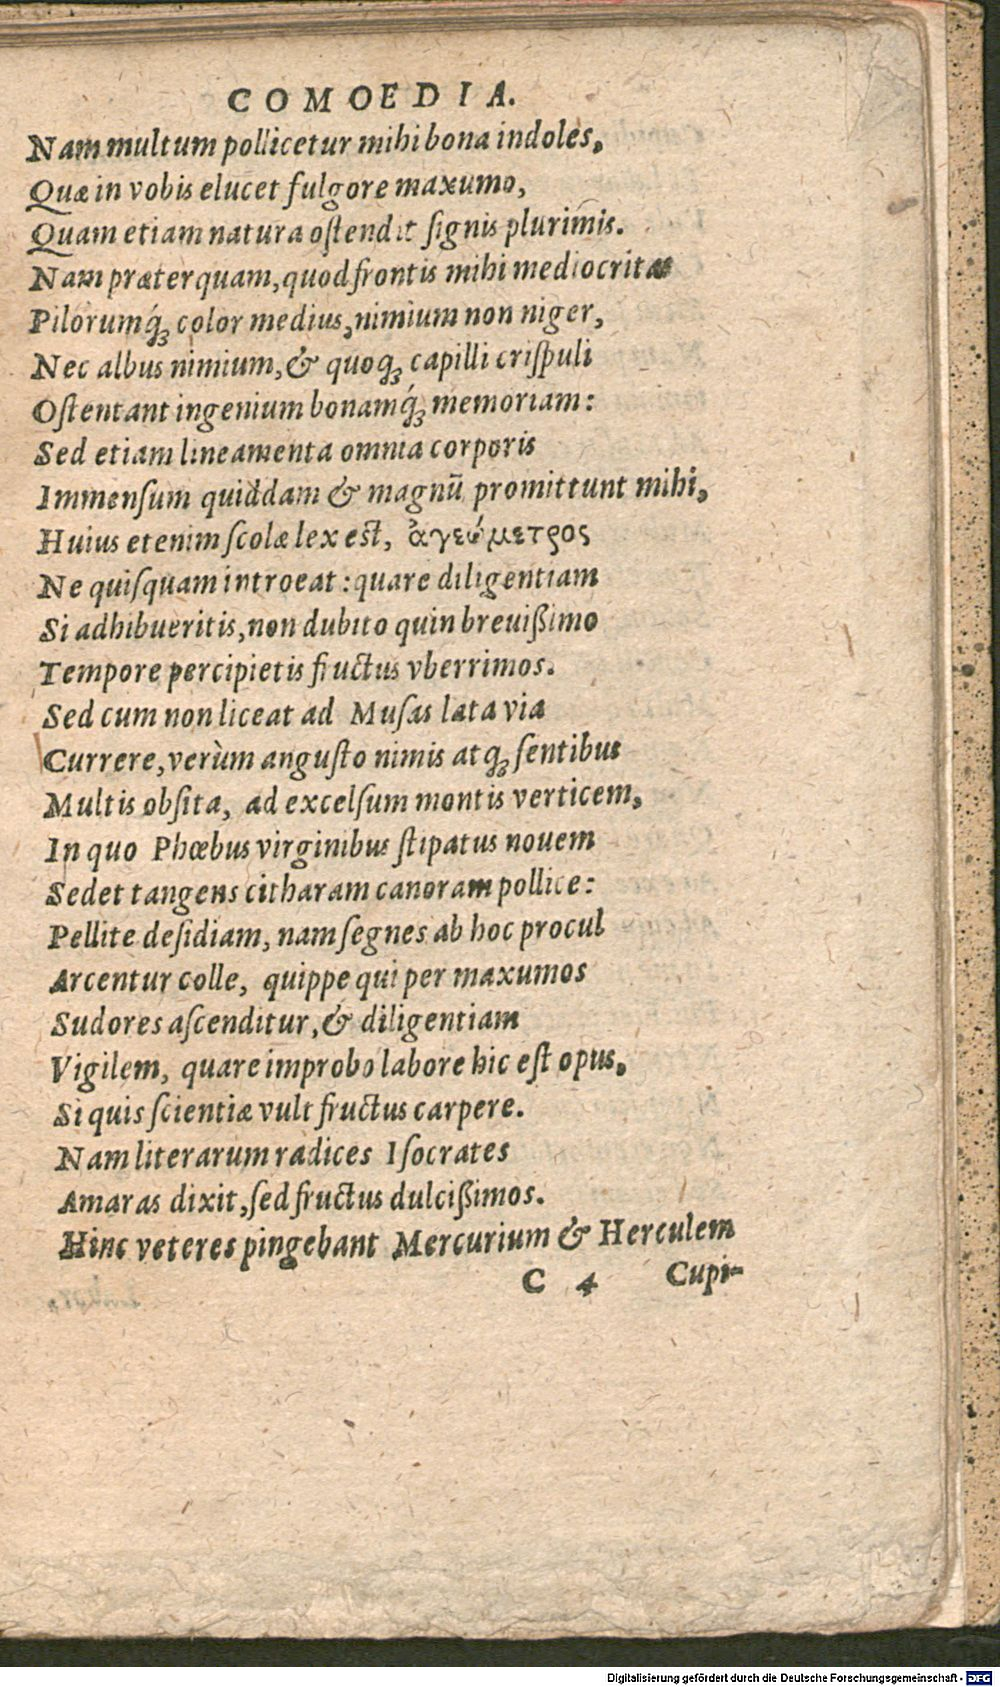 COMOEDIA.
Nam multum pollicetur mihi bona indoles,
Quæ in vobis elucet fulgore maxumo,
Quam etiam natura oſtendit ſignis plurimis.
Nam præterquam, quod frontis mihi mediocritas
Pilorumq́ꝫ color medius, nimium non niger,
Nec albus nimium, & quoqꝫ capilli criſpuli
Oſtentant ingenium bonamq́ꝫ memoriam:
Sed etiam lineamenta omnia corporis
Immenſum quiddam & magnū promittunt mihi,
Huius etenim ſcolæ lex eſt, ἀγεώμετρος
Ne quiſquam introeat: quare diligentiam
Si adhibueritis, non dubito quin breuißimo
Tempore percipietis fructus vberrimos.
Sed cum non liceat ad Muſas lata via
Currere, verùm anguſto nimis atqꝫ ſentibus
Multis obſita, ad excelſum montis verticem,
In quo Phœbus virginibus ſtipatus nouem
Sedet tangens citharam canoram pollice:
Pellite deſidiam, nam ſegnes ab hoc procul
Arcentur colle, quippe qui per maxumos
Sudores aſcenditur, & diligentiam
Vigilem, quare improbo labore hic eſt opus,
Si quis ſcientiæ vult fructus carpere.
Nam literarum radices Iſocrates
Amaras dixit, ſed fructus dulcißimos.
Hinc veteres pingebant Mercurium & Herculem
C 4 Cupi-
Digitalisierung gefördert durch die Deutsche Forschungsgemeinschaft - DFG